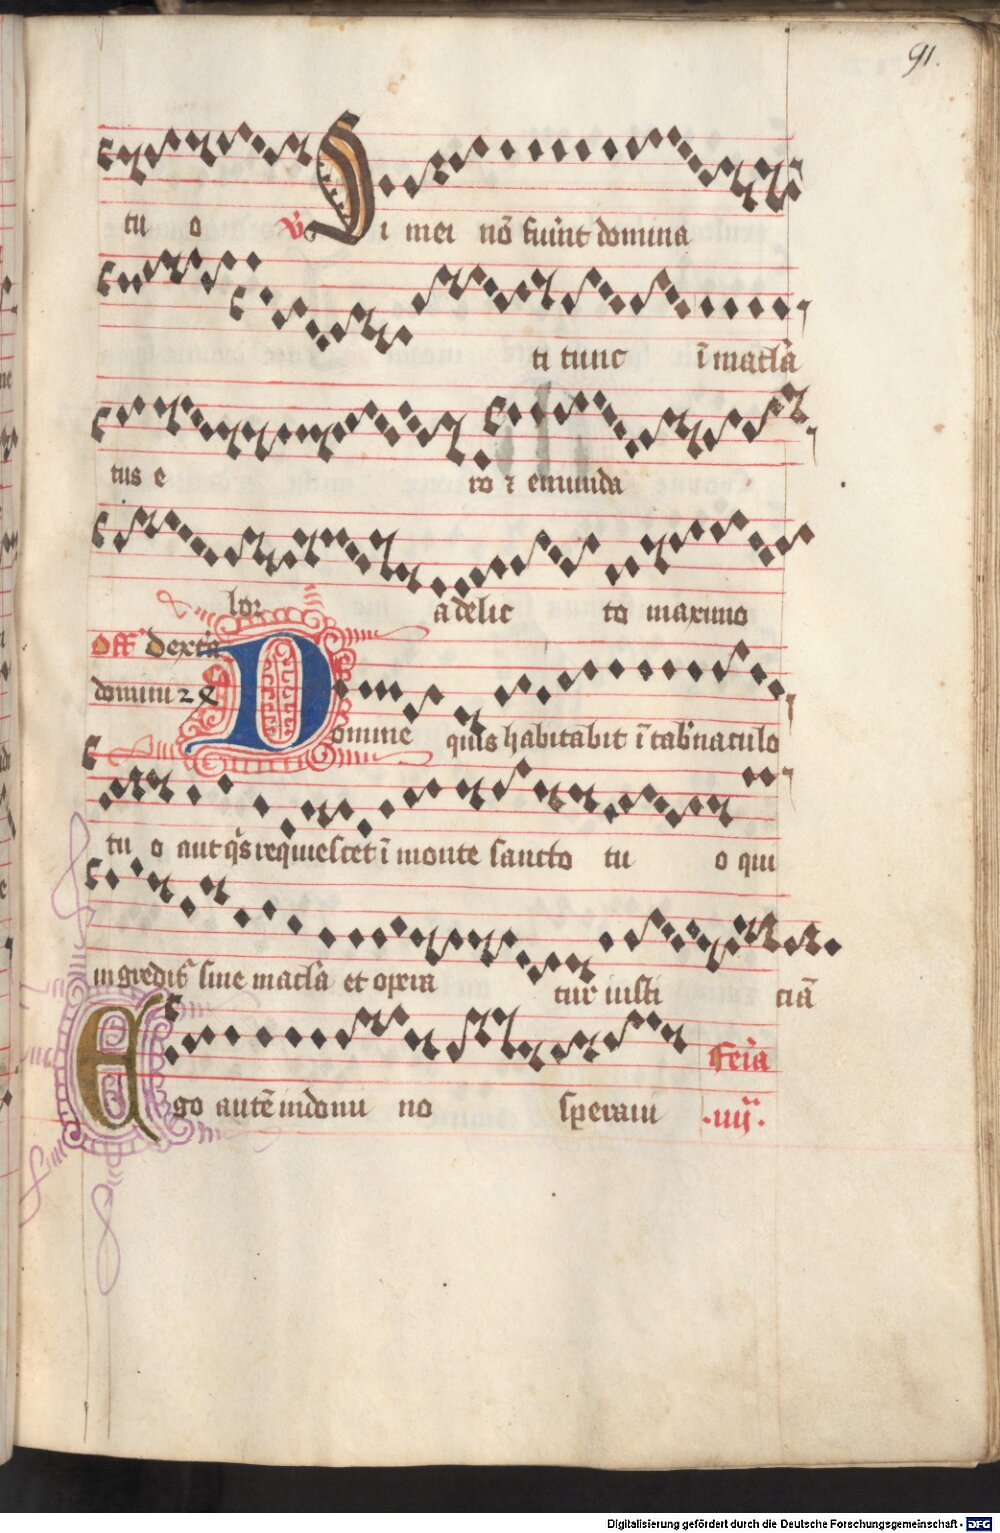 91.
tu o V Si mei nō fuer̄int domina
ti tunc ī macl̄a
tus e ro ⁊ emunda
bor a delic to maximo
Off Dextā
domini ⁊ c̄ Domine quis habitabit ī tab̄naculo
tu o aut q̄s requiescet ī monte sancto tu o qui
ingredit᷑ sine macl̄a et opera tur iusti ciā
Ego autē in domi no speraui Feīa
.iiij.
Digitalisierung gefördert durch die Deutsche Forschungsgemeinschaft - DFG